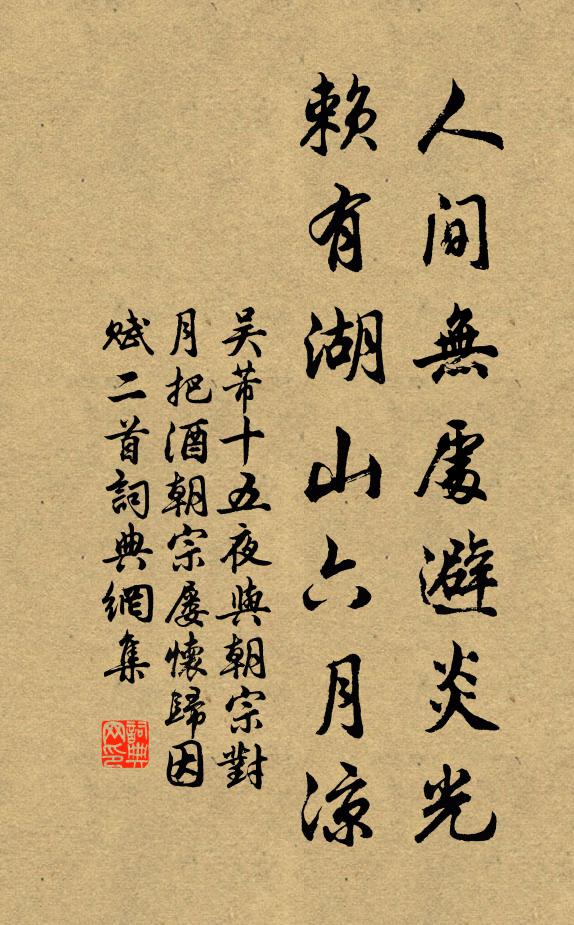 人間無處避炎光
賴有湖山六月涼
吴芾十五夜與朝宗對
月把酒朝宗屢懷歸因
賦二首詞典網集
詞典
网印